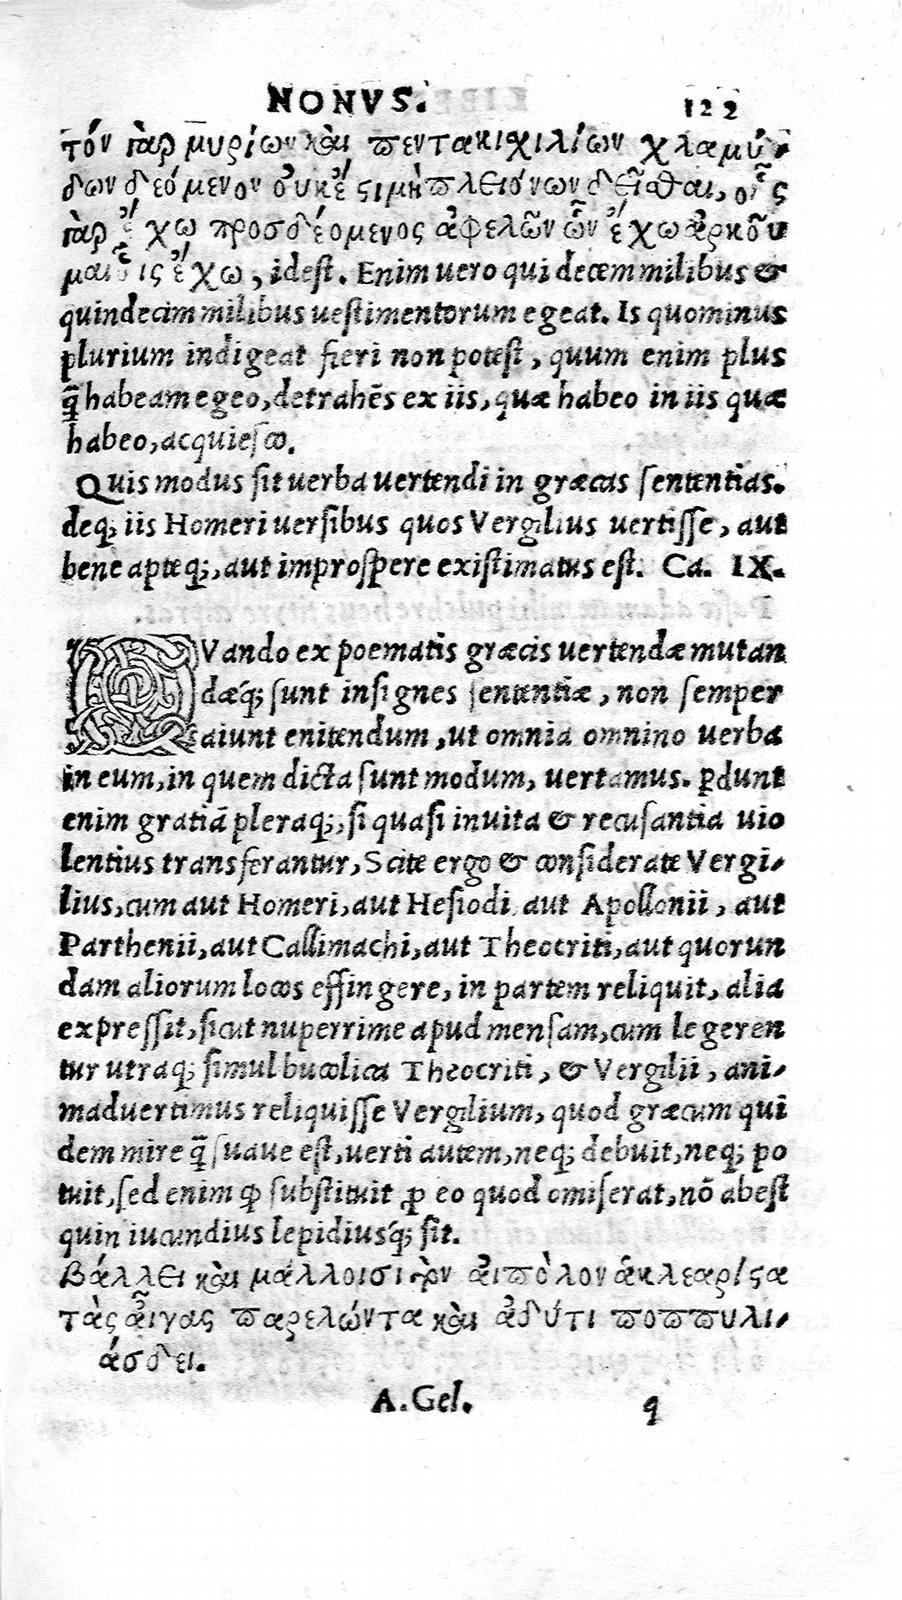 NONVS. 122
τόν γὰρ μυρίων καὶ πεντακιχιλίων χλαμύ-
δων δεόμενον οὐκ ἔστι μὴ πλειόνων δεῖσθαι, οἷς
γὰρ ἔχω προσδεόμενος ἀφελῶν ὧν ἔχω ἀρκοῦ
μαι οἷς ἔχω, idest. Enim uero qui decem milibus &
quindecim milibus uestimentorum egeat. Is quominus
plurium indigeat fieri non potest, quum enim plus
q̃ habeam egeo, detrahẽs ex iis, quæ habeo in iis quæ
habeo, acquiesco.
Quis modus sit uerba uertendi in græcas sententias.
deq; iis Homeri uersibus quos Vergilius uertisse, aut
bene apteq;, aut improspere existimatus est. Ca. IX.
QVando ex poematis græcis uertendæ mutan
dæq́; sunt insignes sententiæ, non semper
aiunt enitendum, ut omnia omnino uerba
in eum, in quem dicta sunt modum, uertamus. ꝑdunt
enim gratiã pleraq;, si quasi inuita & recusantia uio
lentius transferantur, Scite ergo & considerate Vergi-
lius, cum aut Homeri, aut Hesiodi, aut Apollonii, aut
Parthenii, aut Callimachi, aut Theocriti, aut quorun
dam aliorum locos effingere, in partem reliquit, alia
expressit, sicut nuperrime apud mensam, cum legeren
tur utraq; simul bucolica Theocriti, & Vergilii, ani-
maduertimus reliquisse Vergilium, quod græcum qui
dem mire q̃ suaue est, uerti autem, neq; debuit, neq; po
tuit, sed enim ꝙ substituit ꝓ eo quod omiserat, nõ abest
quin iucundius lepidiusq́; sit.
Βάλλει καὶ μάλλοισι τὸν αἰπόλον ἁ κλεαρίστα
τὰς αἶγας παρελώντα καὶ ἁδύ τι ποππυλι-
άσδει.
A. Gel. q